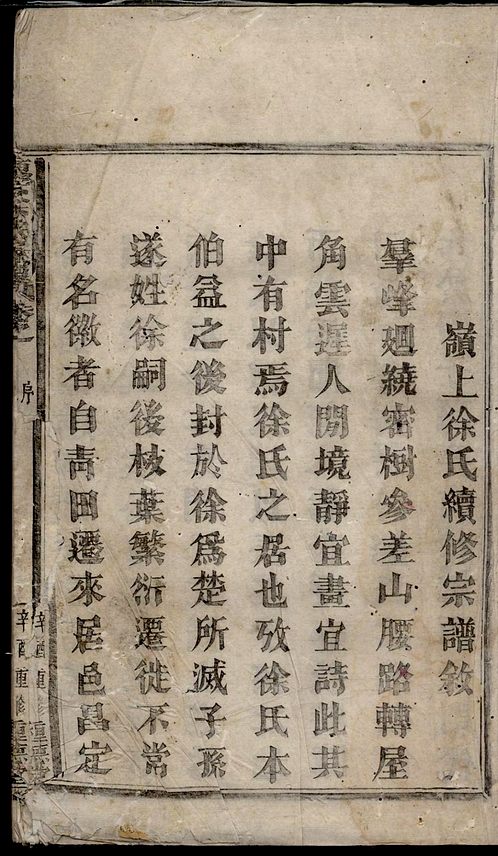 嶺上徐氏續修宗譜敘
羣峰廻繞密樹參差山腰路轉屋
角雲遲人閒境靜宜畫宜詩此其
中有村焉徐氏之居也攷徐氏本
伯益之後封於徐爲楚所滅子孫
遂姓徐嗣後枝葉繁衍遷徙不常
有名徽者自靑田遷來居邑昌定
序
辛酉重修